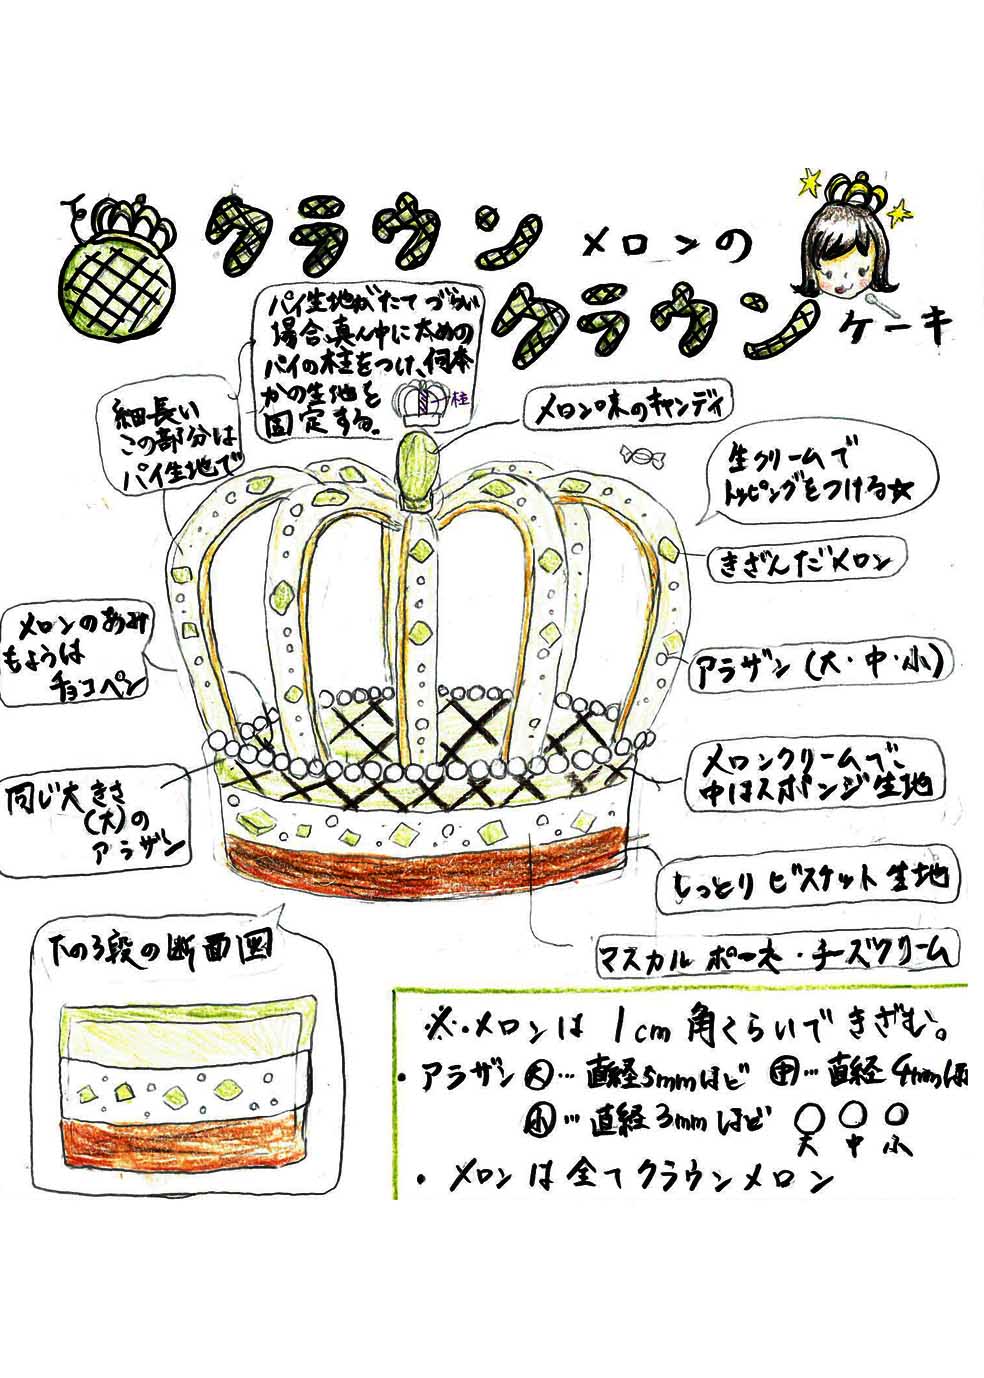 クラウンメロンの
クラウンケーキ
パイ生地がたてづらい
場合、真ん中に太めの
パイの柱をつけ、何本
かの生地を
固定する。
柱
細長い
この部分は
パイ生地で
メロン味のキャンディ
生クリームで
トッピングをつける☆
きざんだメロン
メロンのあみ
もようは
チョコペン
アラザン(大・中・小)
メロンクリームで、
中はスポンジ生地
同じ大きさ
(大)の
アラザン
しっとりビスケット生地
マスカルポーネ・チーズクリーム
下の3段の断面図
※・メロンは1cm角くらいできざむ。
・アラザン 大…直径5mmほど 中…直径4mmほ
小…直径3mmほど
大 中 小
・メロンは全てクラウンメロン